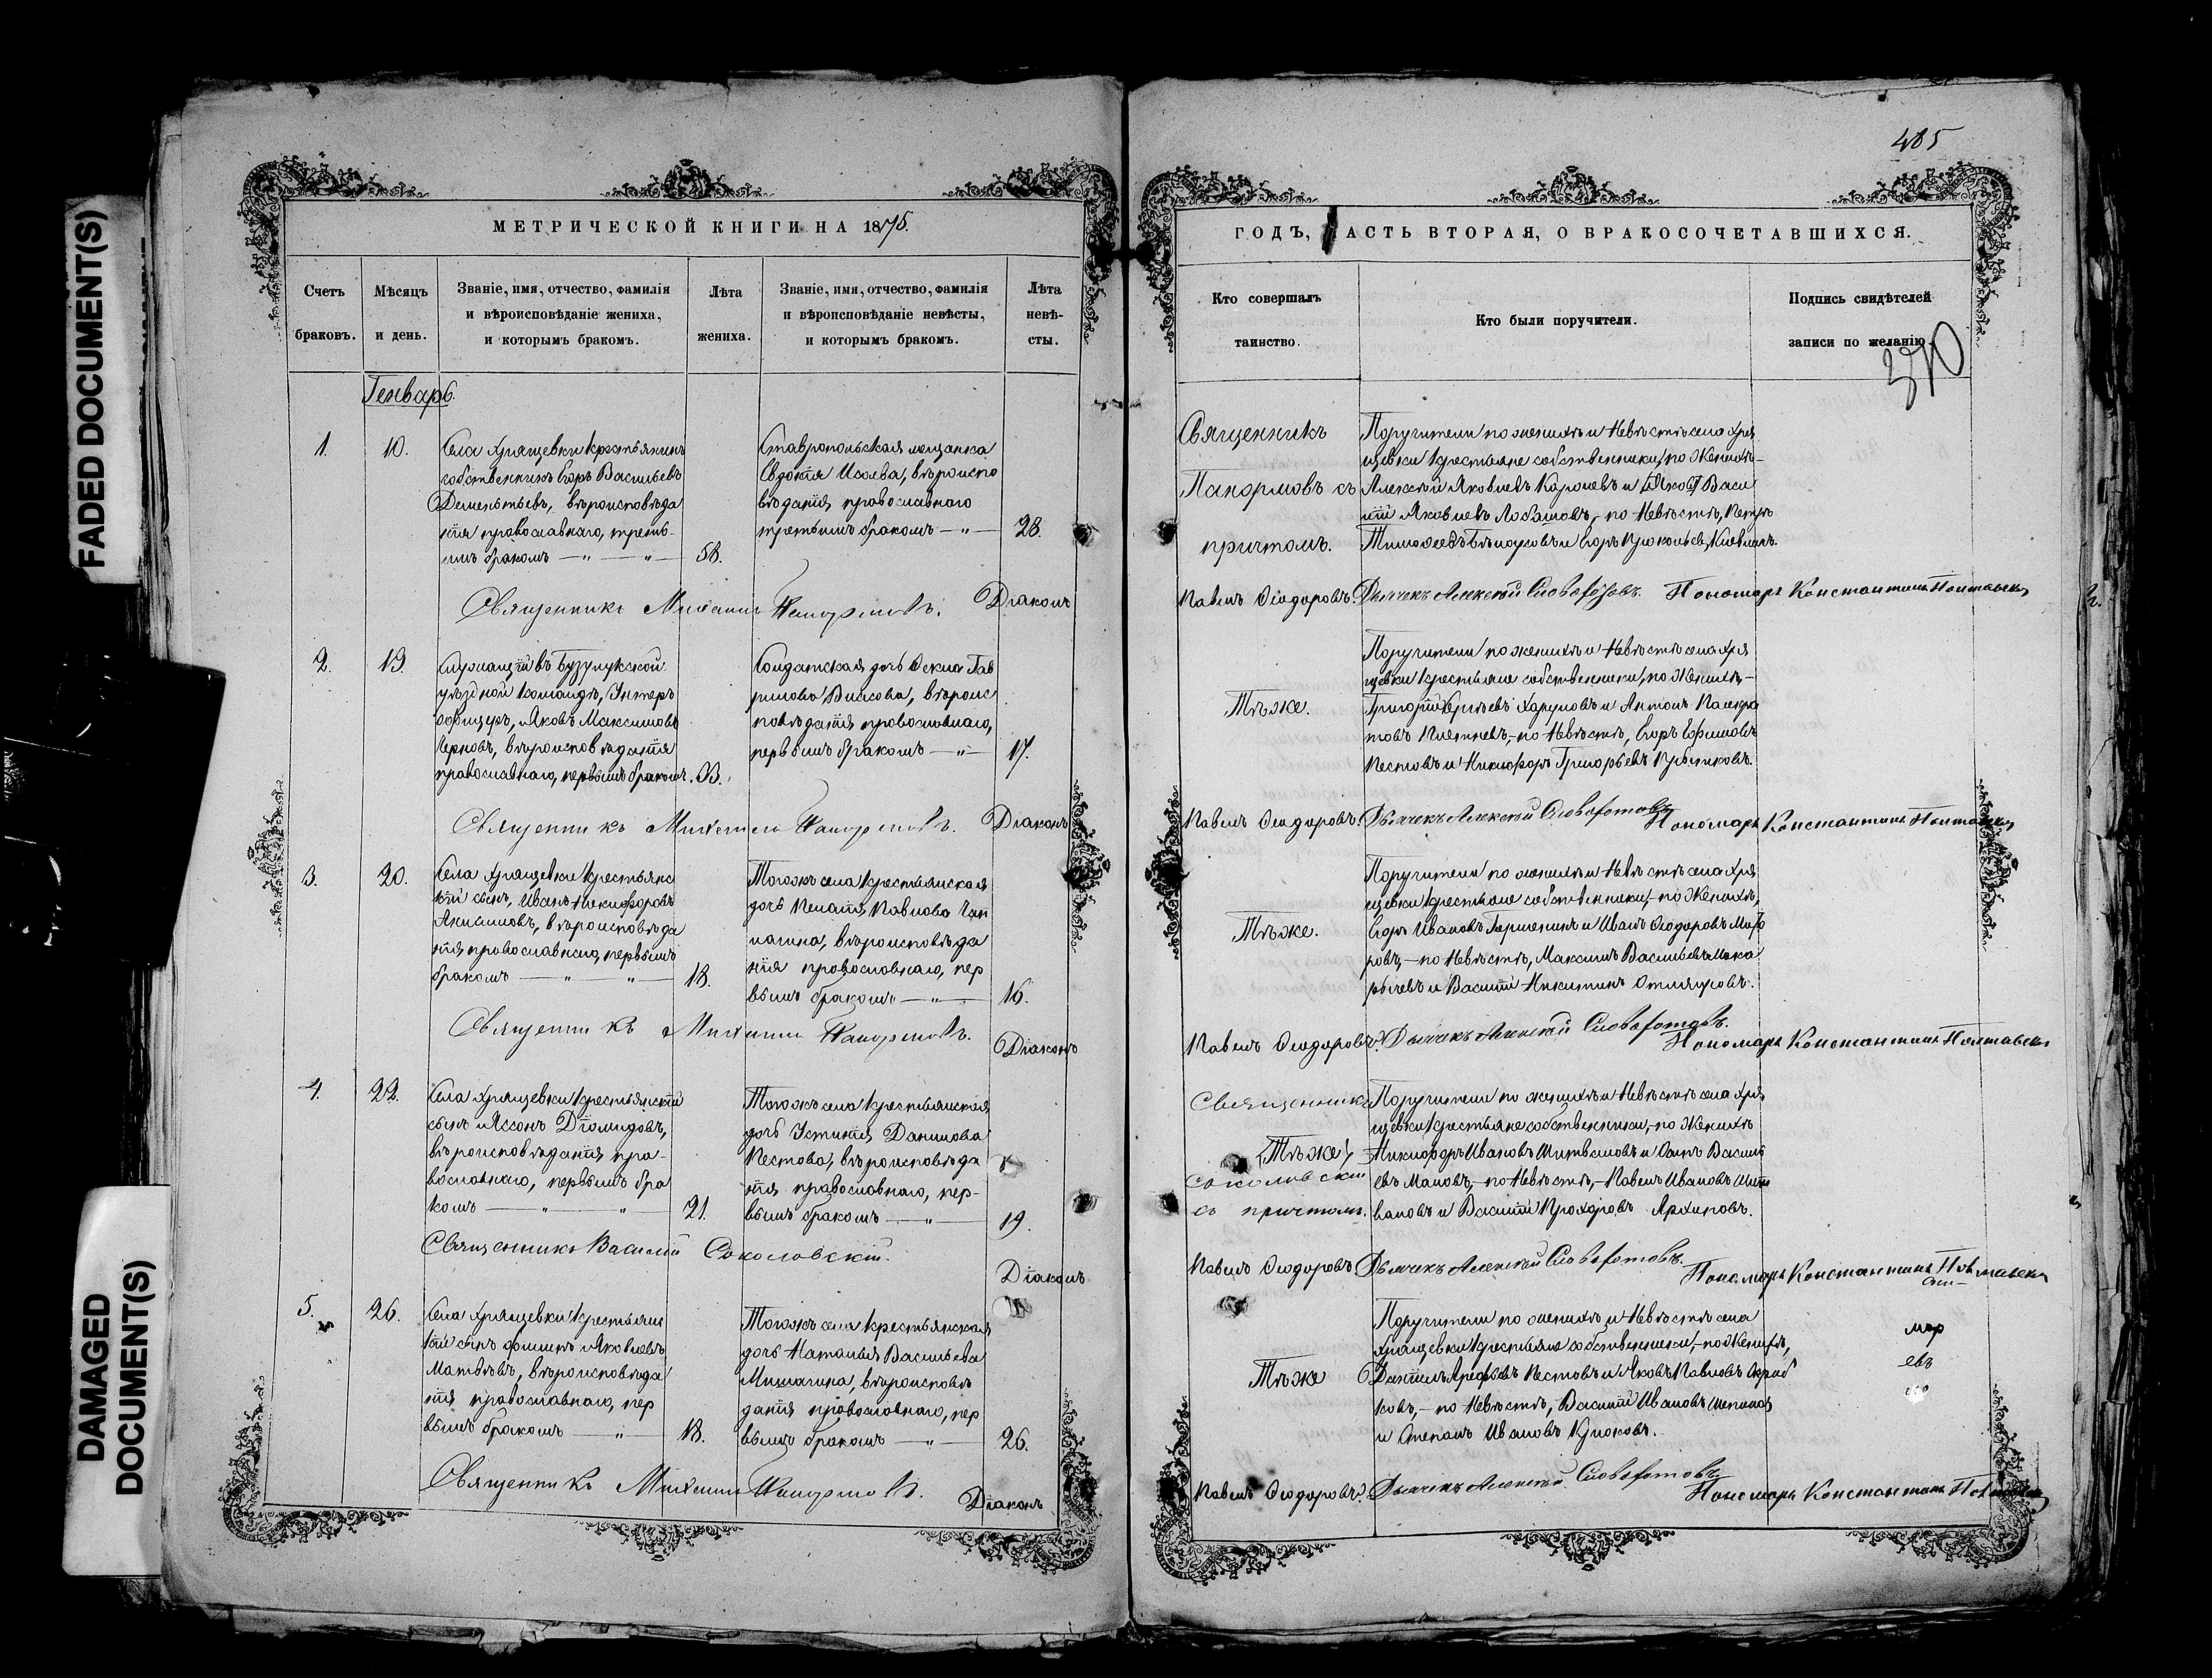 FADED DOCUMENT(S)
DAMAGED
DOCUMENT(S)
МЕТРИЧЕСКОЙ КНИГИ НА 1875.
Счетъ
браковъ.
Мѣсяцъ
и день.
Званіе, имя, отчество, фамилія
и вѣроисповѣданіе жениха,
и которымъ бракомъ.
Лѣта
жениха.
Званіе, имя, отчество, фамилія
и вѣроисповѣданіе невѣсты,
и которымъ бракомъ.
Лѣта
невѣ-
сты.
Генварь.
1.
10.
Села Хрящевки крестьянинъ
собственникъ Егоръ Васильевъ
Дементьевъ, вѣроисповѣда
нія православнаго, треть-
имъ бракомъ — „ — „ —
58.
Ставропольская мещанка
Евдокія Исаева, вѣроиспо
вѣданія православнаго
третьимъ бракомъ — „ —
28.
Священникъ Михаилъ Панормовъ.
Діаконъ
2.
13.
Служащій въ Бузулукской
уѣздной командѣ, Унтеръ
офицеръ, Яковъ Максимовъ
вѣроисповѣданія
православнаго, первымъ бракомъ.
33.
Солдатская дочь Фекла Гав
рилова Власова, вѣроис
повѣданія православнаго,
первымъ бракомъ — „ —
17.
Священникъ Михаилъ Панормовъ.
Діаконъ
3.
20.
Села Хрящевки крестьянс
кій сынъ, Иванъ Никифоровъ
Акимовъ, вѣроисповѣда
нія православнаго, первымъ
бракомъ — „ — „ —
18.
Тогожъ села крестьянская
дочь Пелагія Павлова Чап
лагина, вѣроисповѣда
нія православнаго, пер
вымъ бракомъ — „ —
16.
Священникъ Михаилъ Панормовъ.
Діаконъ
4.
22.
Села Хрящевки крестьянскій
сынъ Іассонъ Діомидовъ,
вѣроисповѣданія пра-
вославнаго, первымъ бра
комъ — „ — „ —
21.
Тогожъ села крестьянская
дочь Устинія Данилова
Пестова, вѣроисповѣда
нія православнаго, пер-
вымъ бракомъ — „ —
19.
Священникъ Василій Соколовскій.
Діаконъ
5.
26.
Села Хрящевки крестьянс
кій сынъ Филипъ Яковлевъ
Матвѣевъ, вѣроисповѣда
нія православнаго, пер
вымъ бракомъ — „ —
18.
Тогожъ села крестьянская
дочь Наталья Васильева
Мишагина, вѣроисповѣ
данія православнаго, пер
вымъ бракомъ — „ —
26.
Священникъ Михаилъ Панормовъ.
Діаконъ
485
ГОДЪ, ЧАСТЬ ВТОРАЯ, О БРАКОСОЧЕТАВШИХСЯ.
Кто совершалъ
таинство.
Кто были поручители.
Подпись свидѣтелей
записи по желанію.
370
Священникъ
Панормовъ съ
причтомъ.
Поручители по женихѣ и невѣстѣ села Хря
щевки крестьяне собственники, по женихѣ-
Алексѣй Яковлевъ и Васи
лій Яковлевъ Лобановъ, по невѣстѣ, Петръ
Тимофеевъ и Егоръ Прокопьевъ
Павелъ Ѳеодоровъ. Дьячекъ Алексѣй Словоротовъ. Пономарь Константинъ Полтавск
Тѣже.
Поручители по женихѣ и невѣстѣ села Хря
щевки крестьяне собственники, по женихѣ,-
Григорій Харуновъ и Антонъ Панкра
товъ Плетневъ,-по невѣстѣ, Егоръ Ефимовъ
Пестовъ и Никифоръ Григорьевъ
Павелъ Ѳеодоровъ. Дьячекъ Алексѣй Словоротовъ. Пономарь Константинъ Полтавск
Тѣже.
Поручители по женихѣ и невѣстѣ села Хря
щевки крестьяне собственники,-по женихѣ,
Егоръ Ивановъ и Иванъ Ѳеодоровъ
ровъ,-по невѣстѣ, Максимъ Васильевъ Мака
рычевъ и Василій Никитинъ
Павелъ Ѳеодоровъ. Дьячекъ Алексѣй Словоротовъ. Пономарь Константинъ Полтавск
Священникъ
(Тѣже)
Соколовскій
съ причтомъ.
Поручители по женихѣ и невѣстѣ села Хря
щевки крестьяне собственники,-по женихѣ
Никифоръ Ивановъ и Василь
евъ Маловъ,-по невѣстѣ,-Павелъ Ивановъ
и Василій Прохоровъ Архиповъ.
Павелъ Ѳеодоровъ. Дьячекъ Алексѣй Словоротовъ. Пономарь Константинъ Полтавск
Тѣже
Поручители по женихѣ и невѣстѣ села
Хрящевки крестьяне собственники,-по женихѣ,
Даніилъ Пестовъ и Яковъ Павловъ Скроб
ковъ,-по невѣстѣ, Василій Ивановъ
и Степанъ Ивановъ Крюковъ.
Павелъ Ѳеодоровъ. Дьячекъ Алексѣй Словоротовъ. Пономарь Константинъ